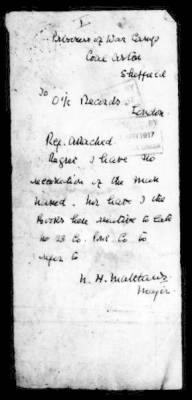 I
Prisoners of War Camp
Coal Aston
Sheffield
To O i/c Records
London
1917
Ref. Attached.
Regret I have no
recollection of the man
named. Nor have I the
Books here relative to
No 23 Co. Co to
refer to
N. H. Matthews
Major